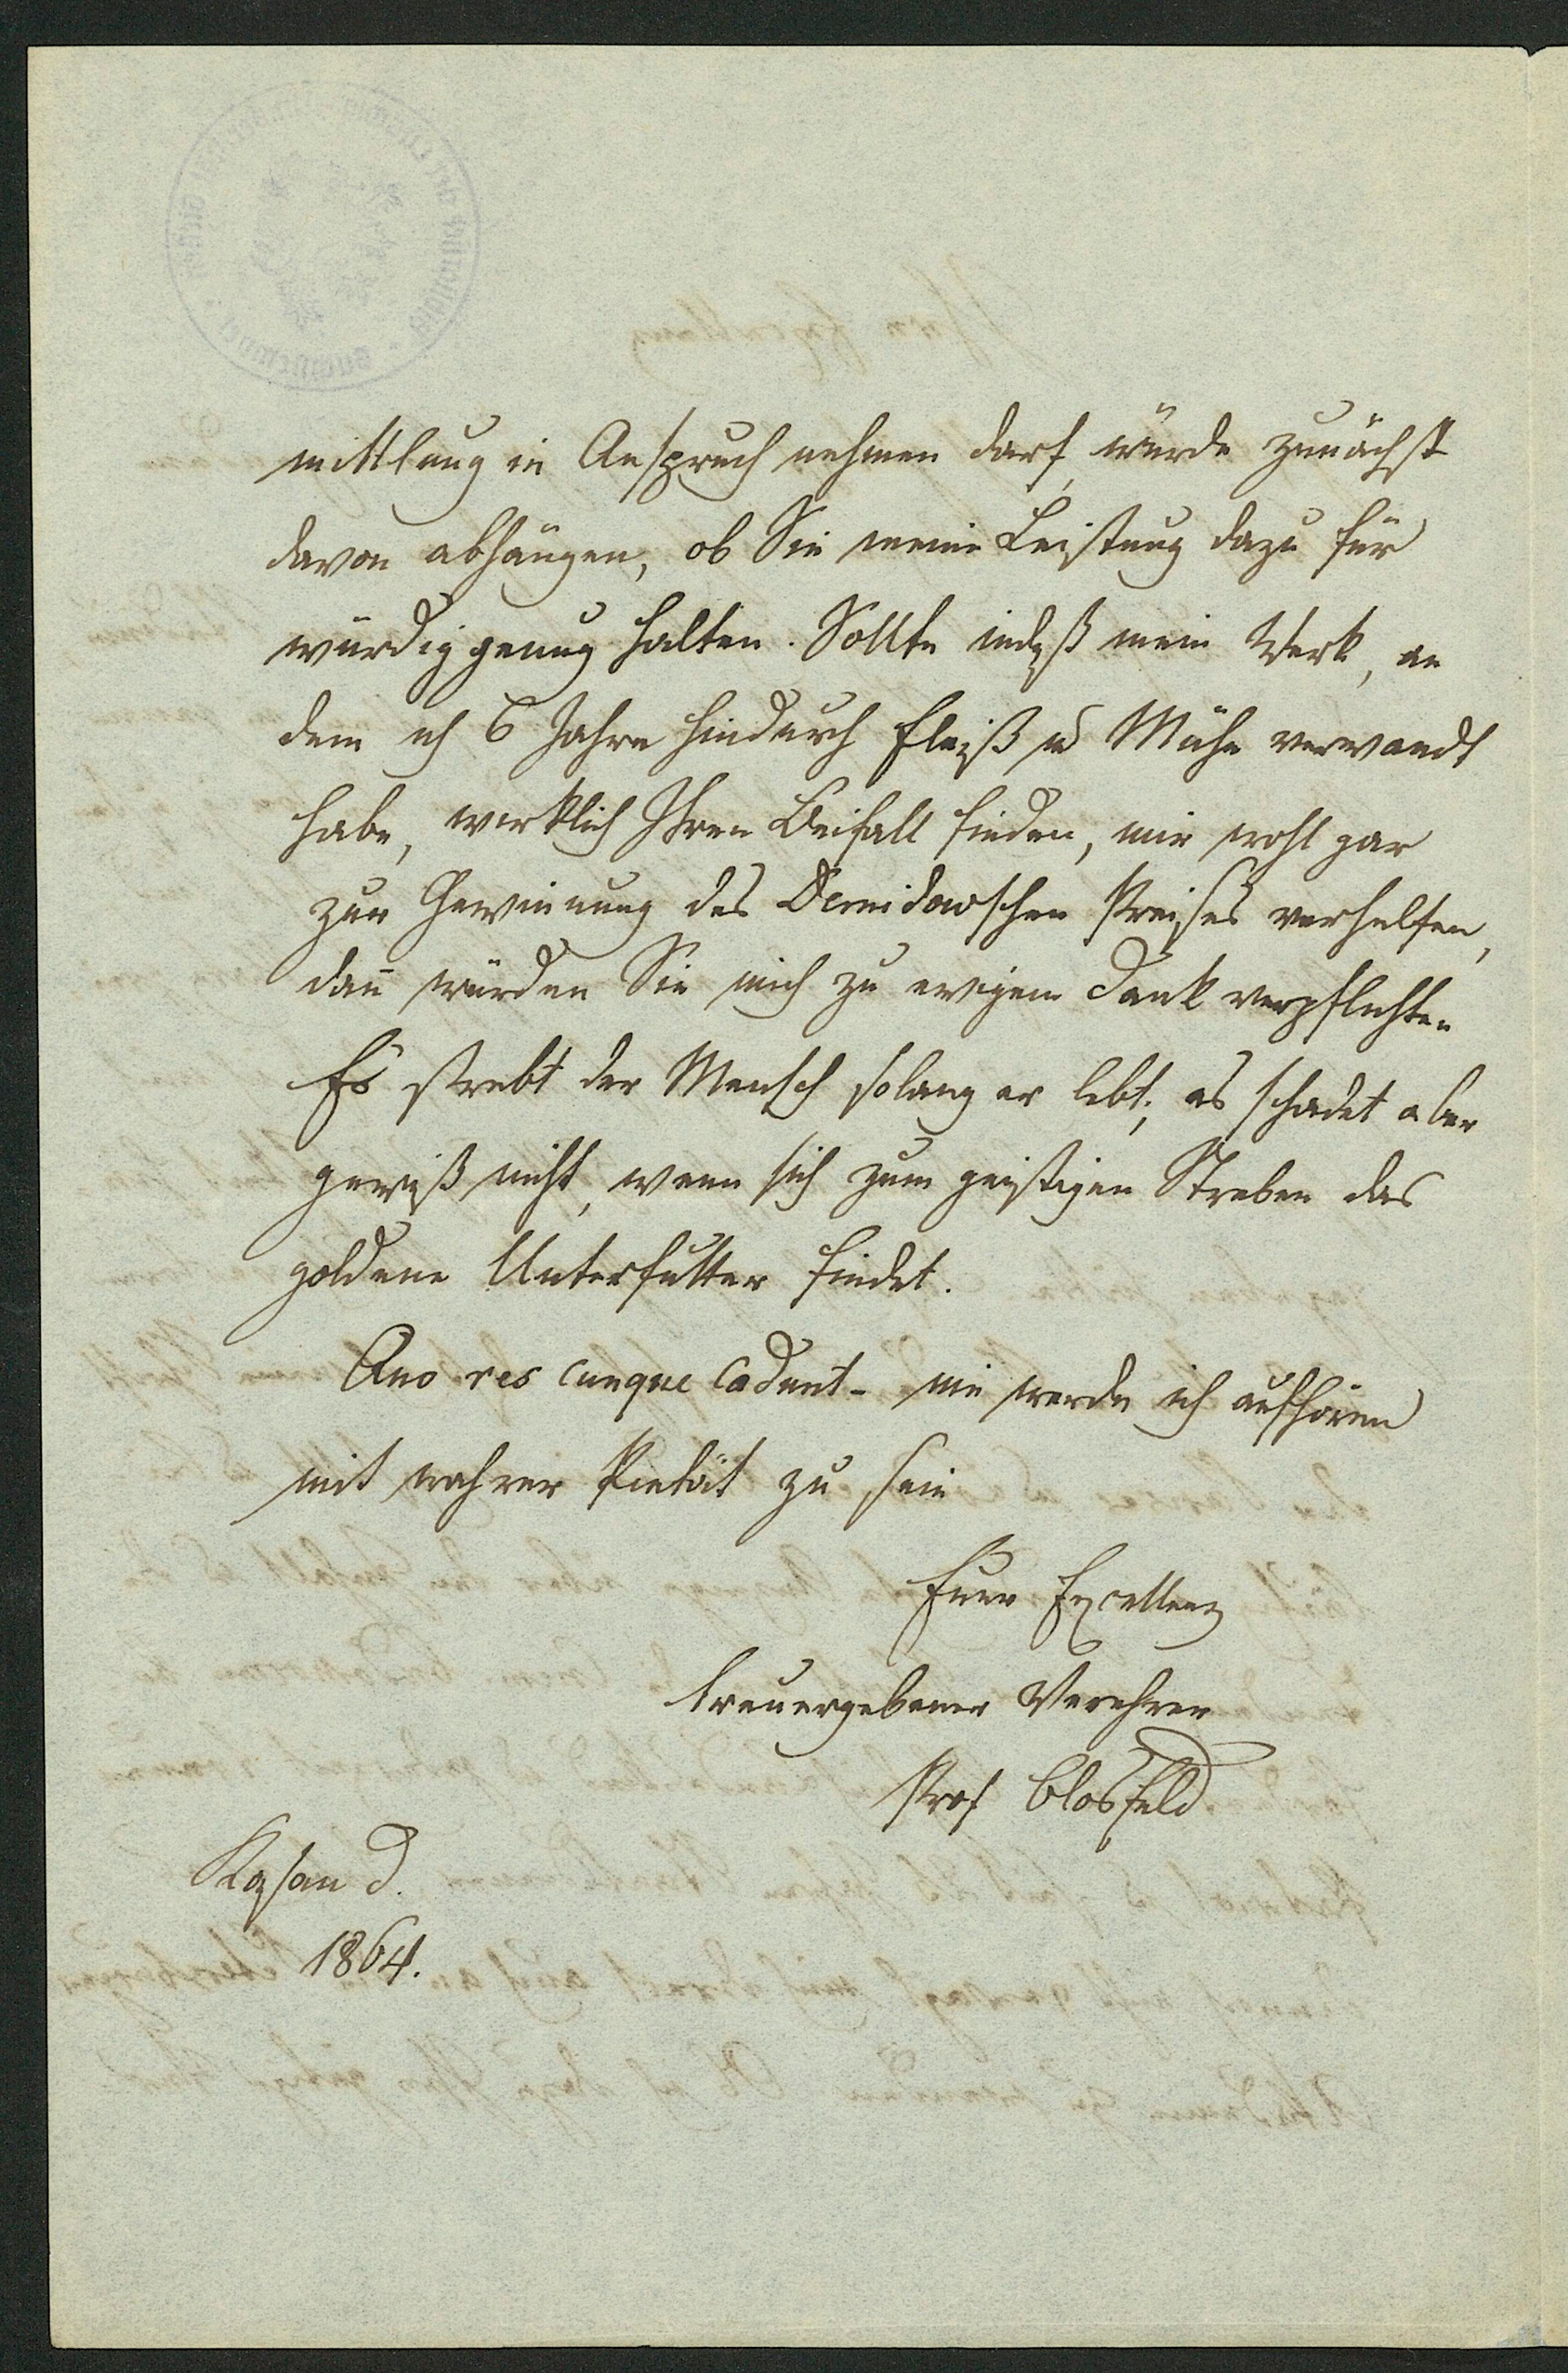 mittlung in Anspruch nehmen darf, würde zunächst
davon abhängen, ob Sie meine Leistung dazu für
würdig genug halten. Sollte indeß mein Werk, an
dem ich 6 Jahre hindurch Fleiß u Mühe verwandt
habe, wirklich Ihren Beifall finden, mir wohl gar
zur Gewinnung des Demidowschen Preises verhelfen,
dan̄ würden Sie mich zu ewigem Dank verpflichten
Es strebt der Mensch solang er lebt; es schadet aber
gewiß nicht, wenn sich zum geistigen Streben das
goldene Unterfutter findet.
Quo res cunque cadent - nie werde ich aufhören
mit wahrer Pietät zu sein
Euer Excellenz
treuergebener Verehrer
Prof Blosfeld
Kasan d.
1864.